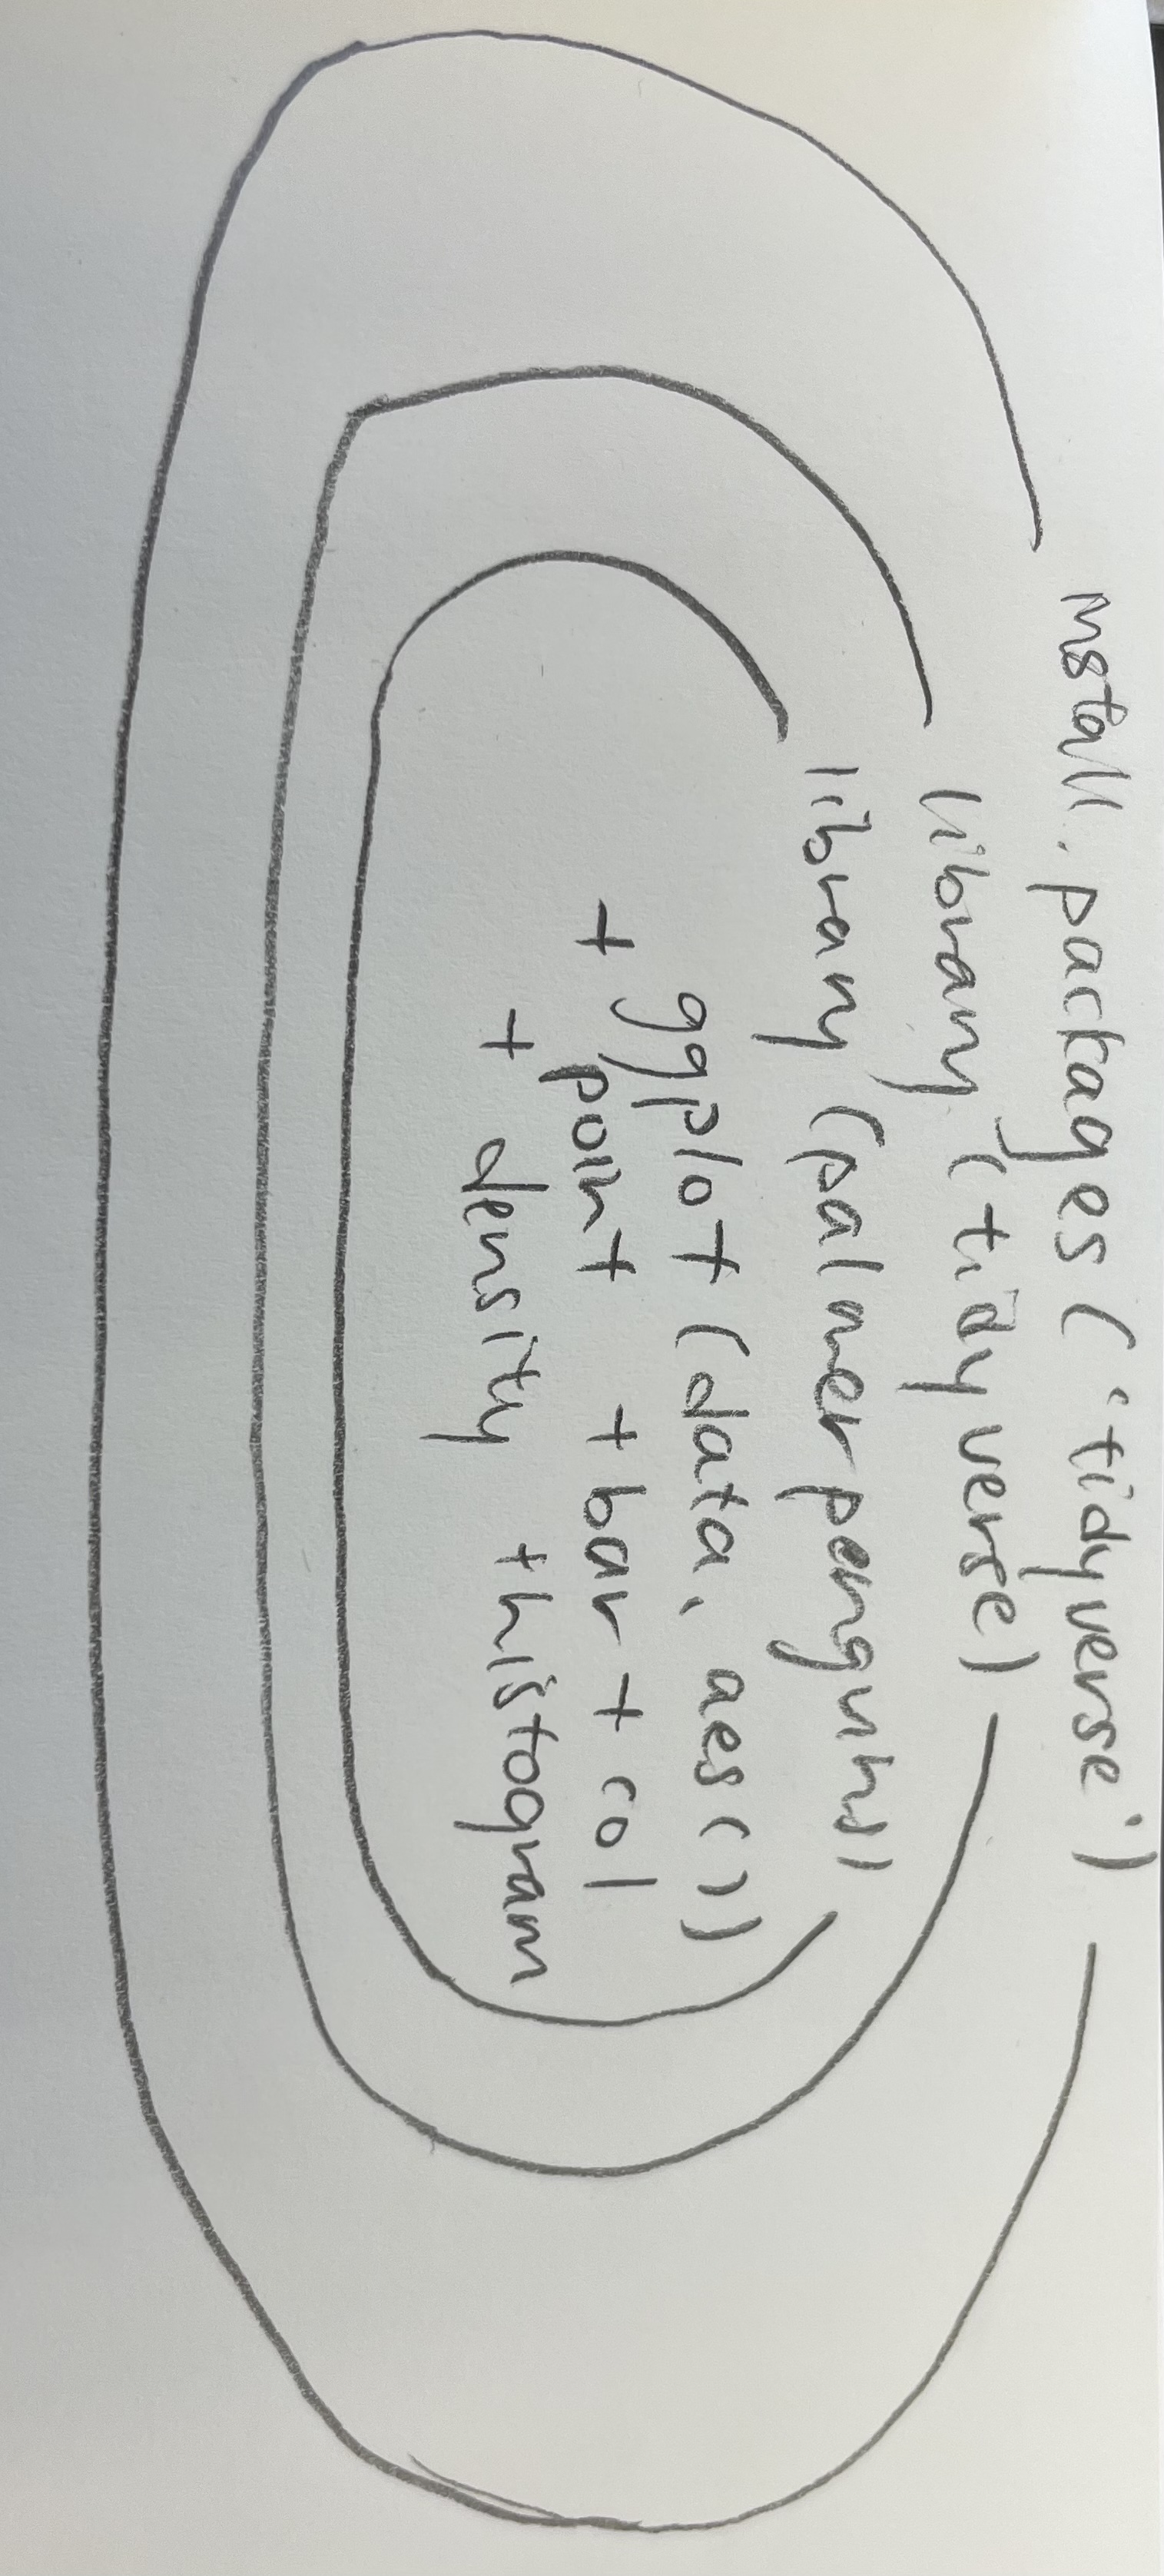 install.packages('tidyverse')
library(tidyverse)
library(palmerpenguins)
ggplot(data, aes())
+ point + bar + col
+ density + histogram